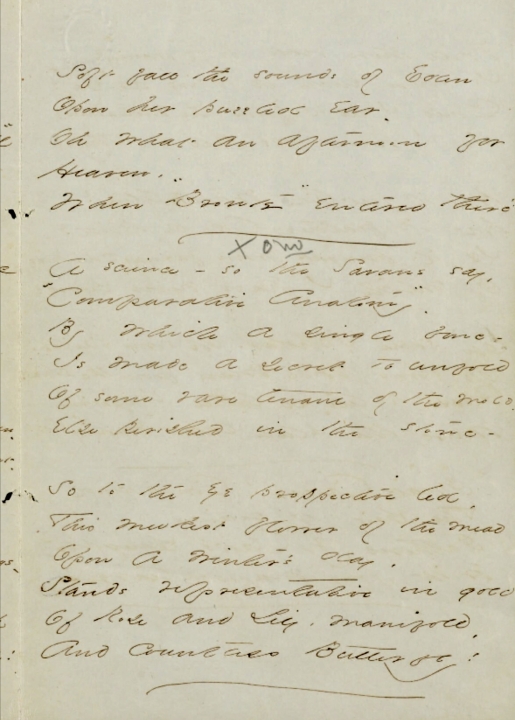 Soft fall the sounds of Eden
Upon her puzzled Ear.
Oh what an afternoon for
Heaven..
When "Bronte" entered there
X
A science – so the Savans say,
"Comparative Anatomy".
By which a single bone –
Is made a secret to unfold
Of some rare tenant of the mold,
Else perished in the stone –
So to the eye prospective led,
This meekest flower of the mead
Upon a winter's day,
Stands representative in gold
Of Rose and Lily, manifold,
And countless Butterfly!